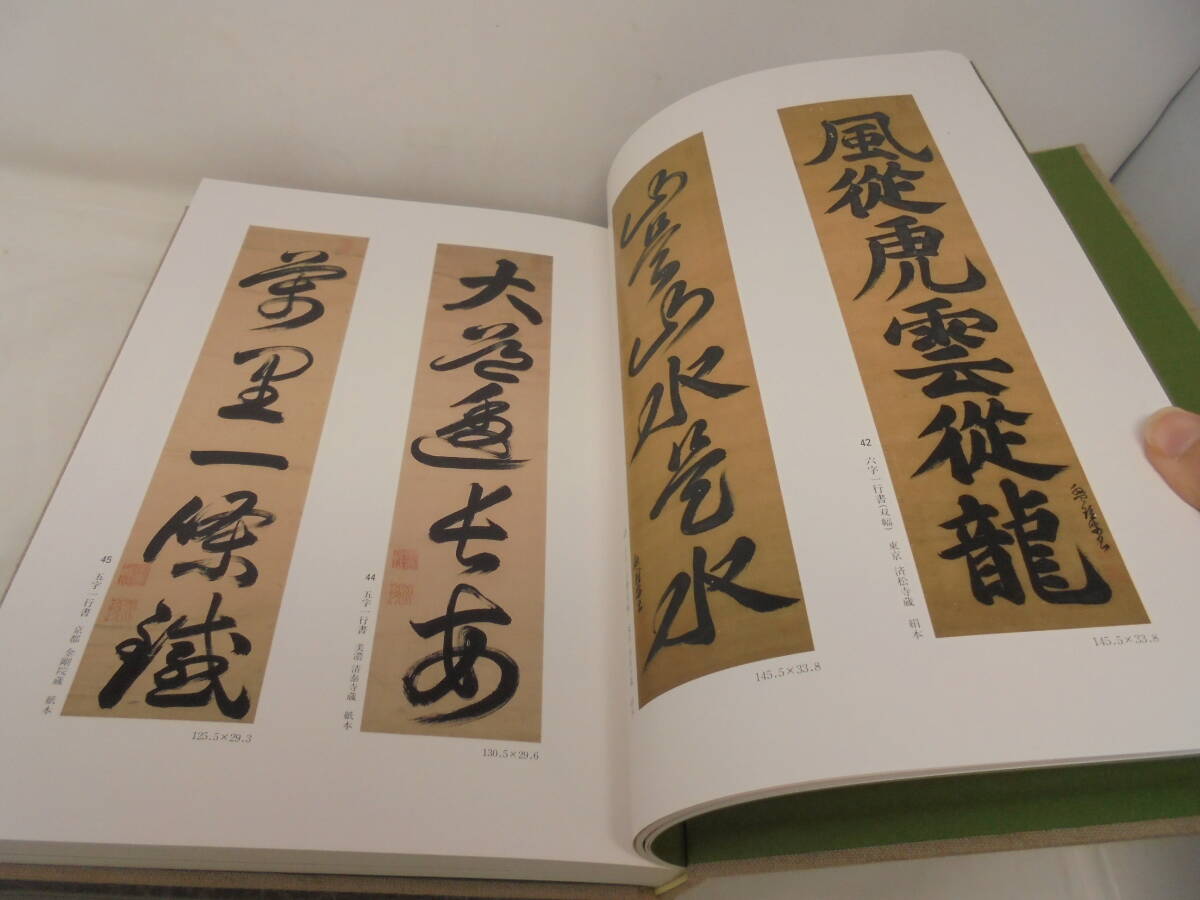 風從虎雲從龍
42 六字一行書(双幅) 東京 済松寺蔵 絹本
145.5×33.8
山是山水是水
145.5×33.8
大道透長安
44 五字一行書 美濃 清泰寺蔵 紙本
130.5×29.6
萬里一條鐵
45 五字一行書 京都 金剛院蔵 紙本
125.5×29.3